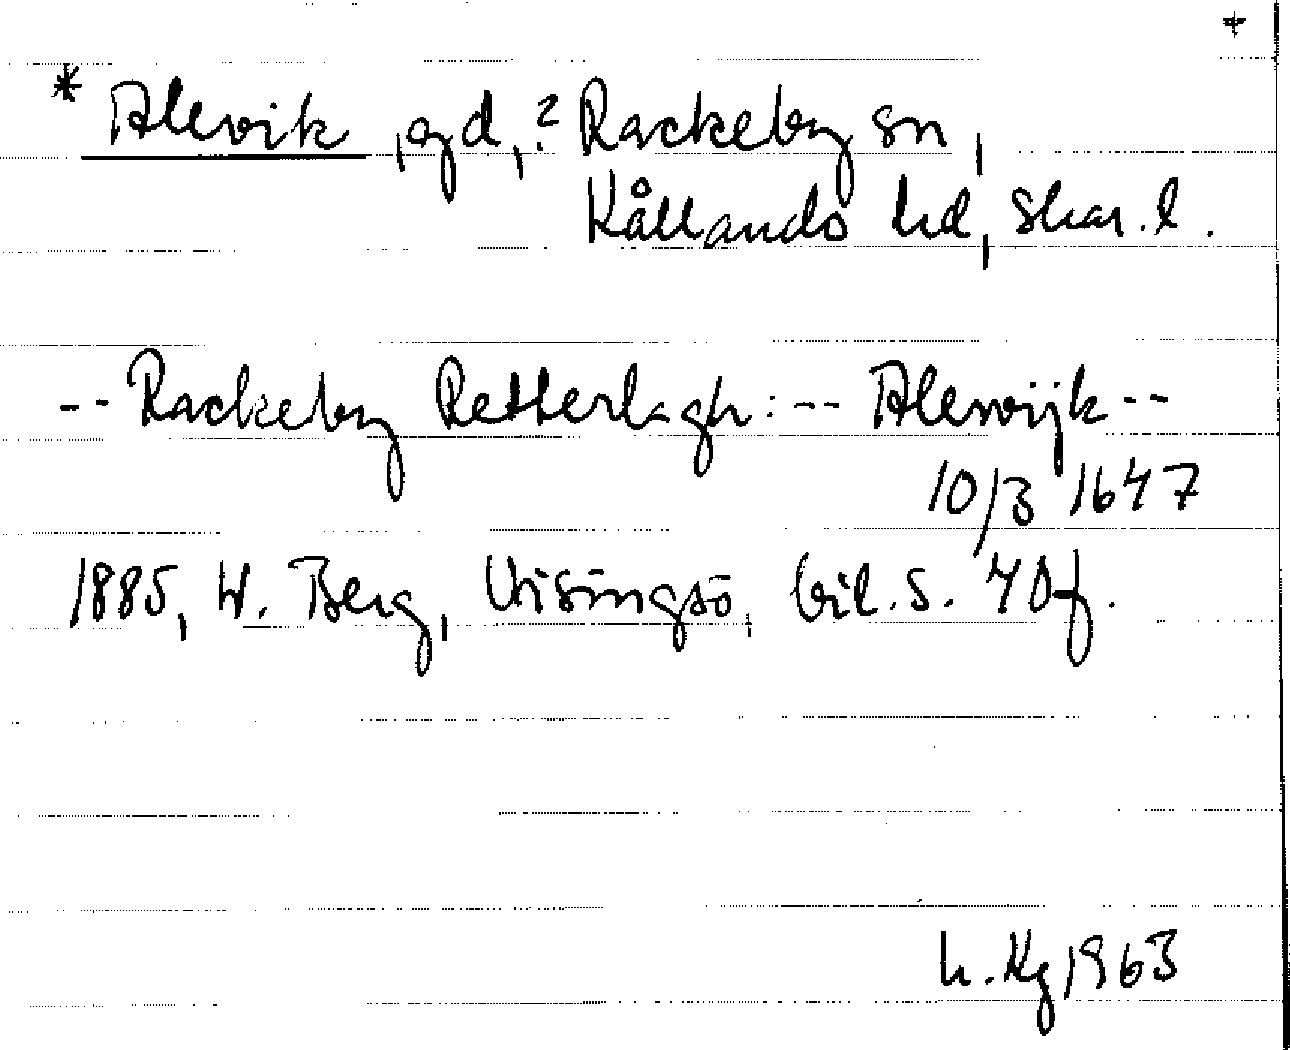 +
* Alevik, gd, ? Rackeby sn,
Kållands hd, Skar. l.
-- Rackeby Retterlagh: -- Alewijk --
10/3 1647
1885, W. Berg, Visingsö, bil. s. 40 f.